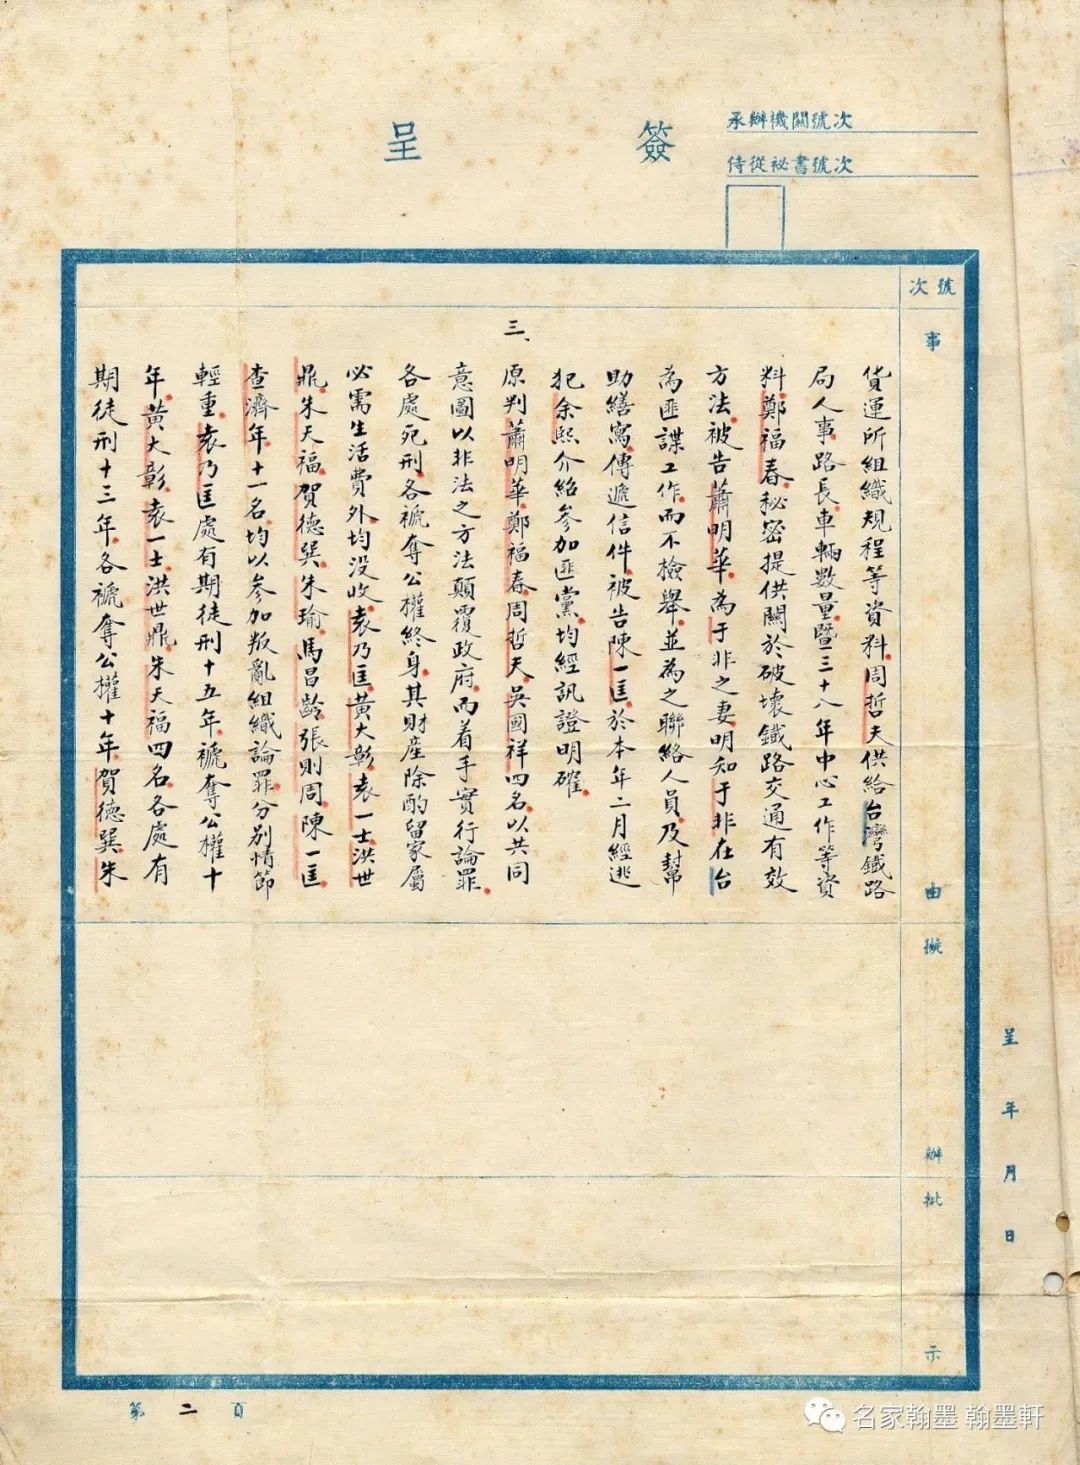 簽呈
承辦機關號次
侍從祕書號次
號次
事由
擬辦
批示
呈 年 月 日
貨運所組織規程等資料周哲夫供給台灣鐵路
局人事路長車輛數量暨三十八年中心工作等資
料鄭福春秘密提供關於破壞鐵路交通有效
方法被告蕭明華為于非之妻明知于非在台
為匪諜工作而不檢舉並為之聯絡人員及幫
助繕寫傳遞信件被告陳一匡於本年二月經逃
犯余熙介紹參加匪黨均經訊證明確
三、
原判蕭明華鄭福春周哲夫吳國祥四名以共同
意圖以非法之方法顛覆政府而着手實行論罪
各處死刑各褫奪公權終身其財產除酌留家屬
必需生活費外均没收袁乃匡黃大彰袁一士洪世
鼎朱天福賀德巽朱瑜馬昌齡張則周陳一匡
查濟年十一名均以參加叛亂組織論罪分別情節
輕重袁乃匡處有期徒刑十五年褫奪公權十
年黃大彰袁一士洪世鼎朱天福四名各處有
期徒刑十三年各褫奪公權十年賀德巽朱
第二頁
名家翰墨 翰墨軒